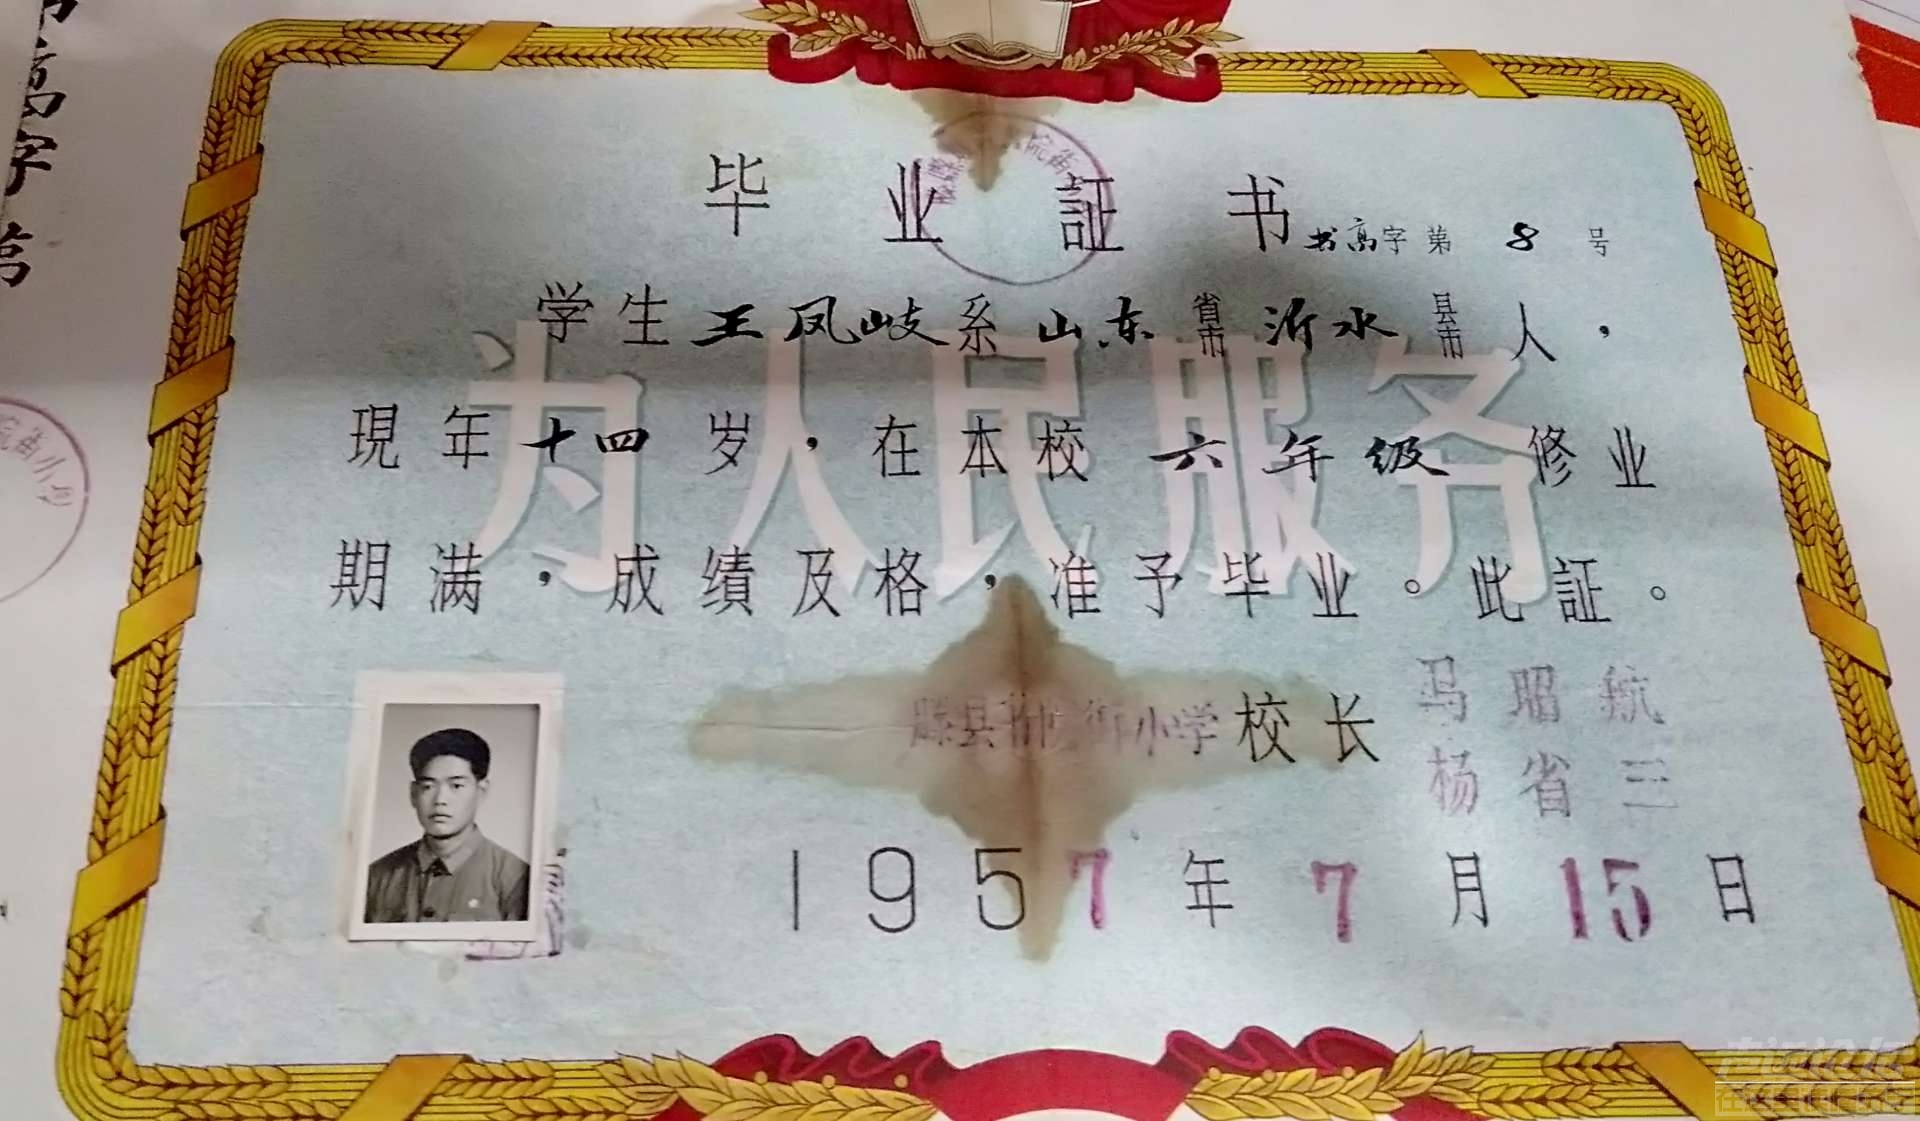 毕业証书
书高字第8号
学生王凤岐系山东省市沂水县市人，
現年十四岁，在本校六年级修业
期满，成績及格，准予毕业。此証。
为人民服务
滕县 街小学校长 马昭航
杨省三
1957年7月15日
高字第
院街小